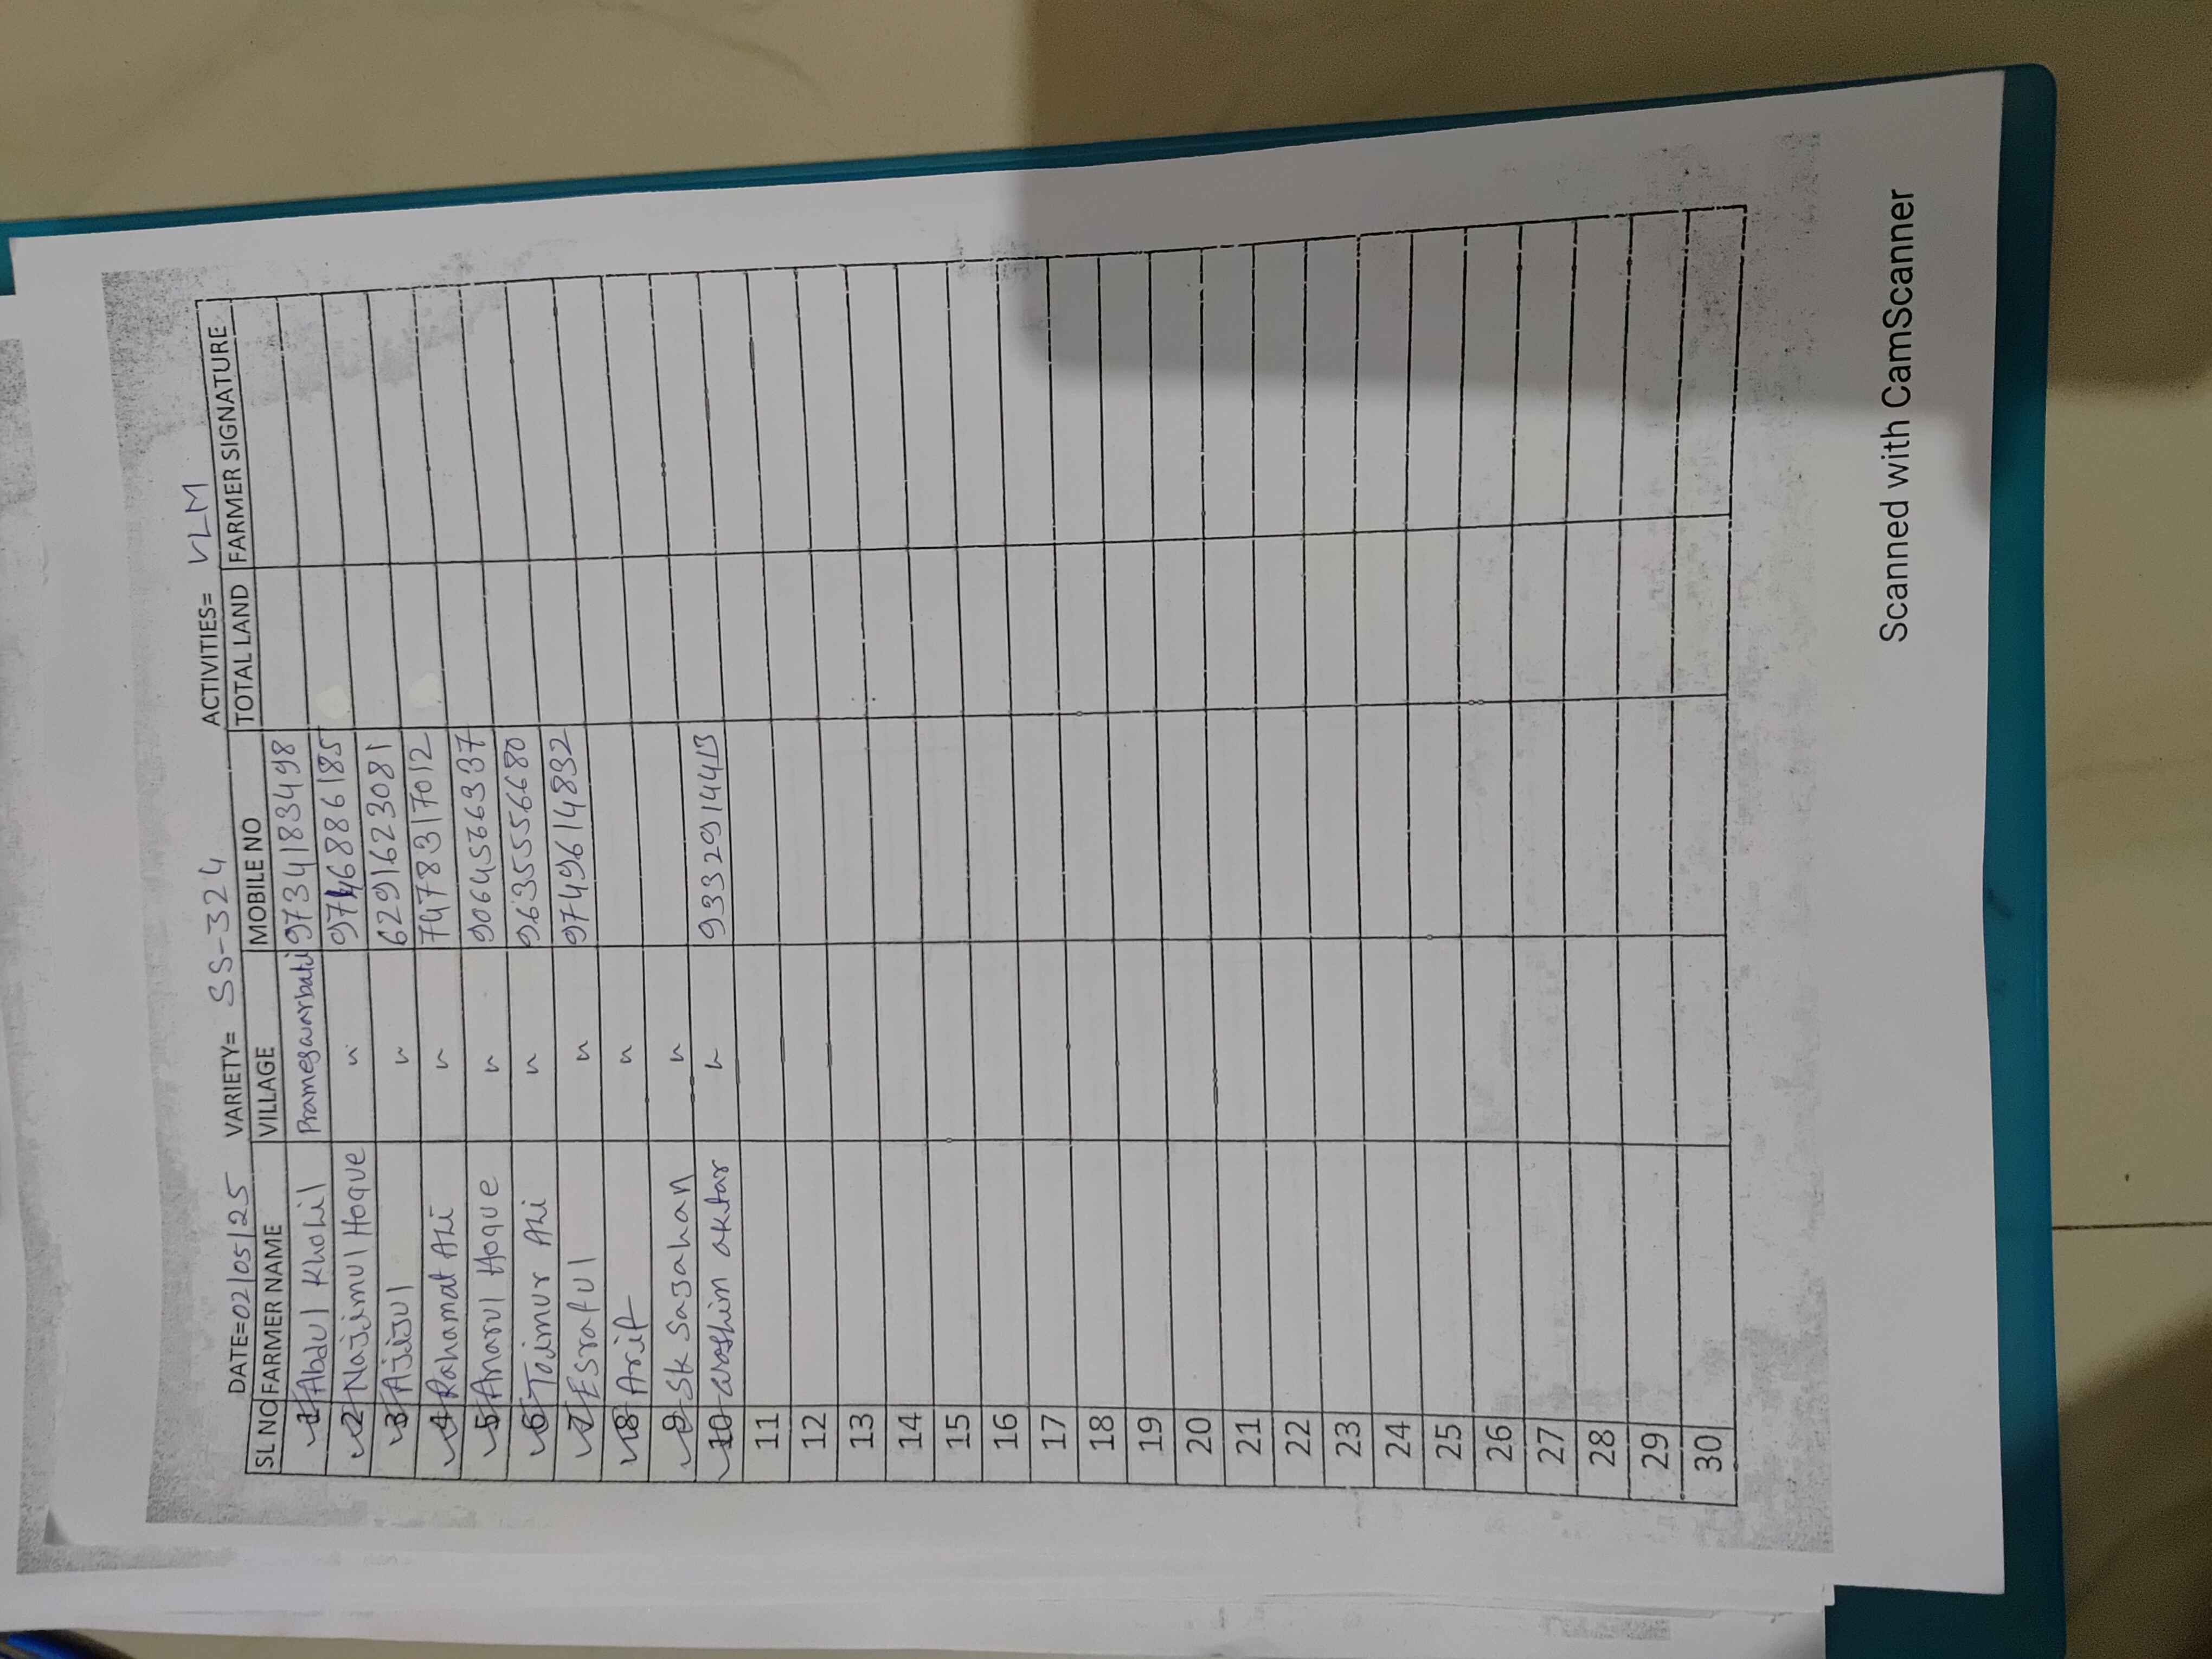 DATE=02/05/25 VARIETY= SS-324 ACTIVITIES= VLM
SL NO FARMER NAME VILLAGE MOBILE NO TOTAL LAND FARMER SIGNATURE
1 Abdul Kholil Prameswarbati 9734183498
2 Najimul Hoque " 9746886185
3 Ajijul " 6291623081
4 Rahamat Ali " 7478317012
5 Anarul Hoque " 9064566337
6 Taimur Ali " 9635556680
7 Esraful " 9749614832
8 Arif "
9 Sk Sajahan "
10 Washim aktar "
11
12
13
14
15
16
17
18
19
20
21
22
23
24
25
26
27
28
29
30
Scanned with CamScanner